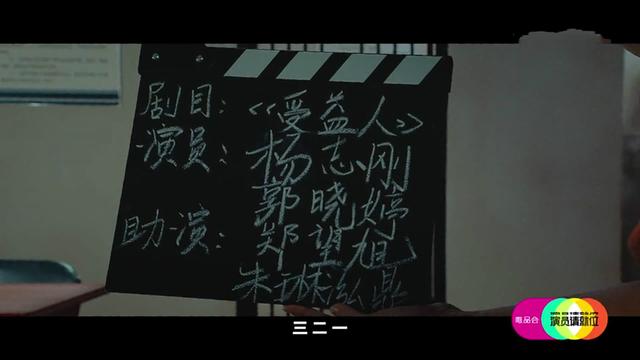 剧目：《受益人》
演员：杨志刚
郭晓婷
助演：郑望旭
朱琳泓鼎
三二一
唯品会
演员请就位